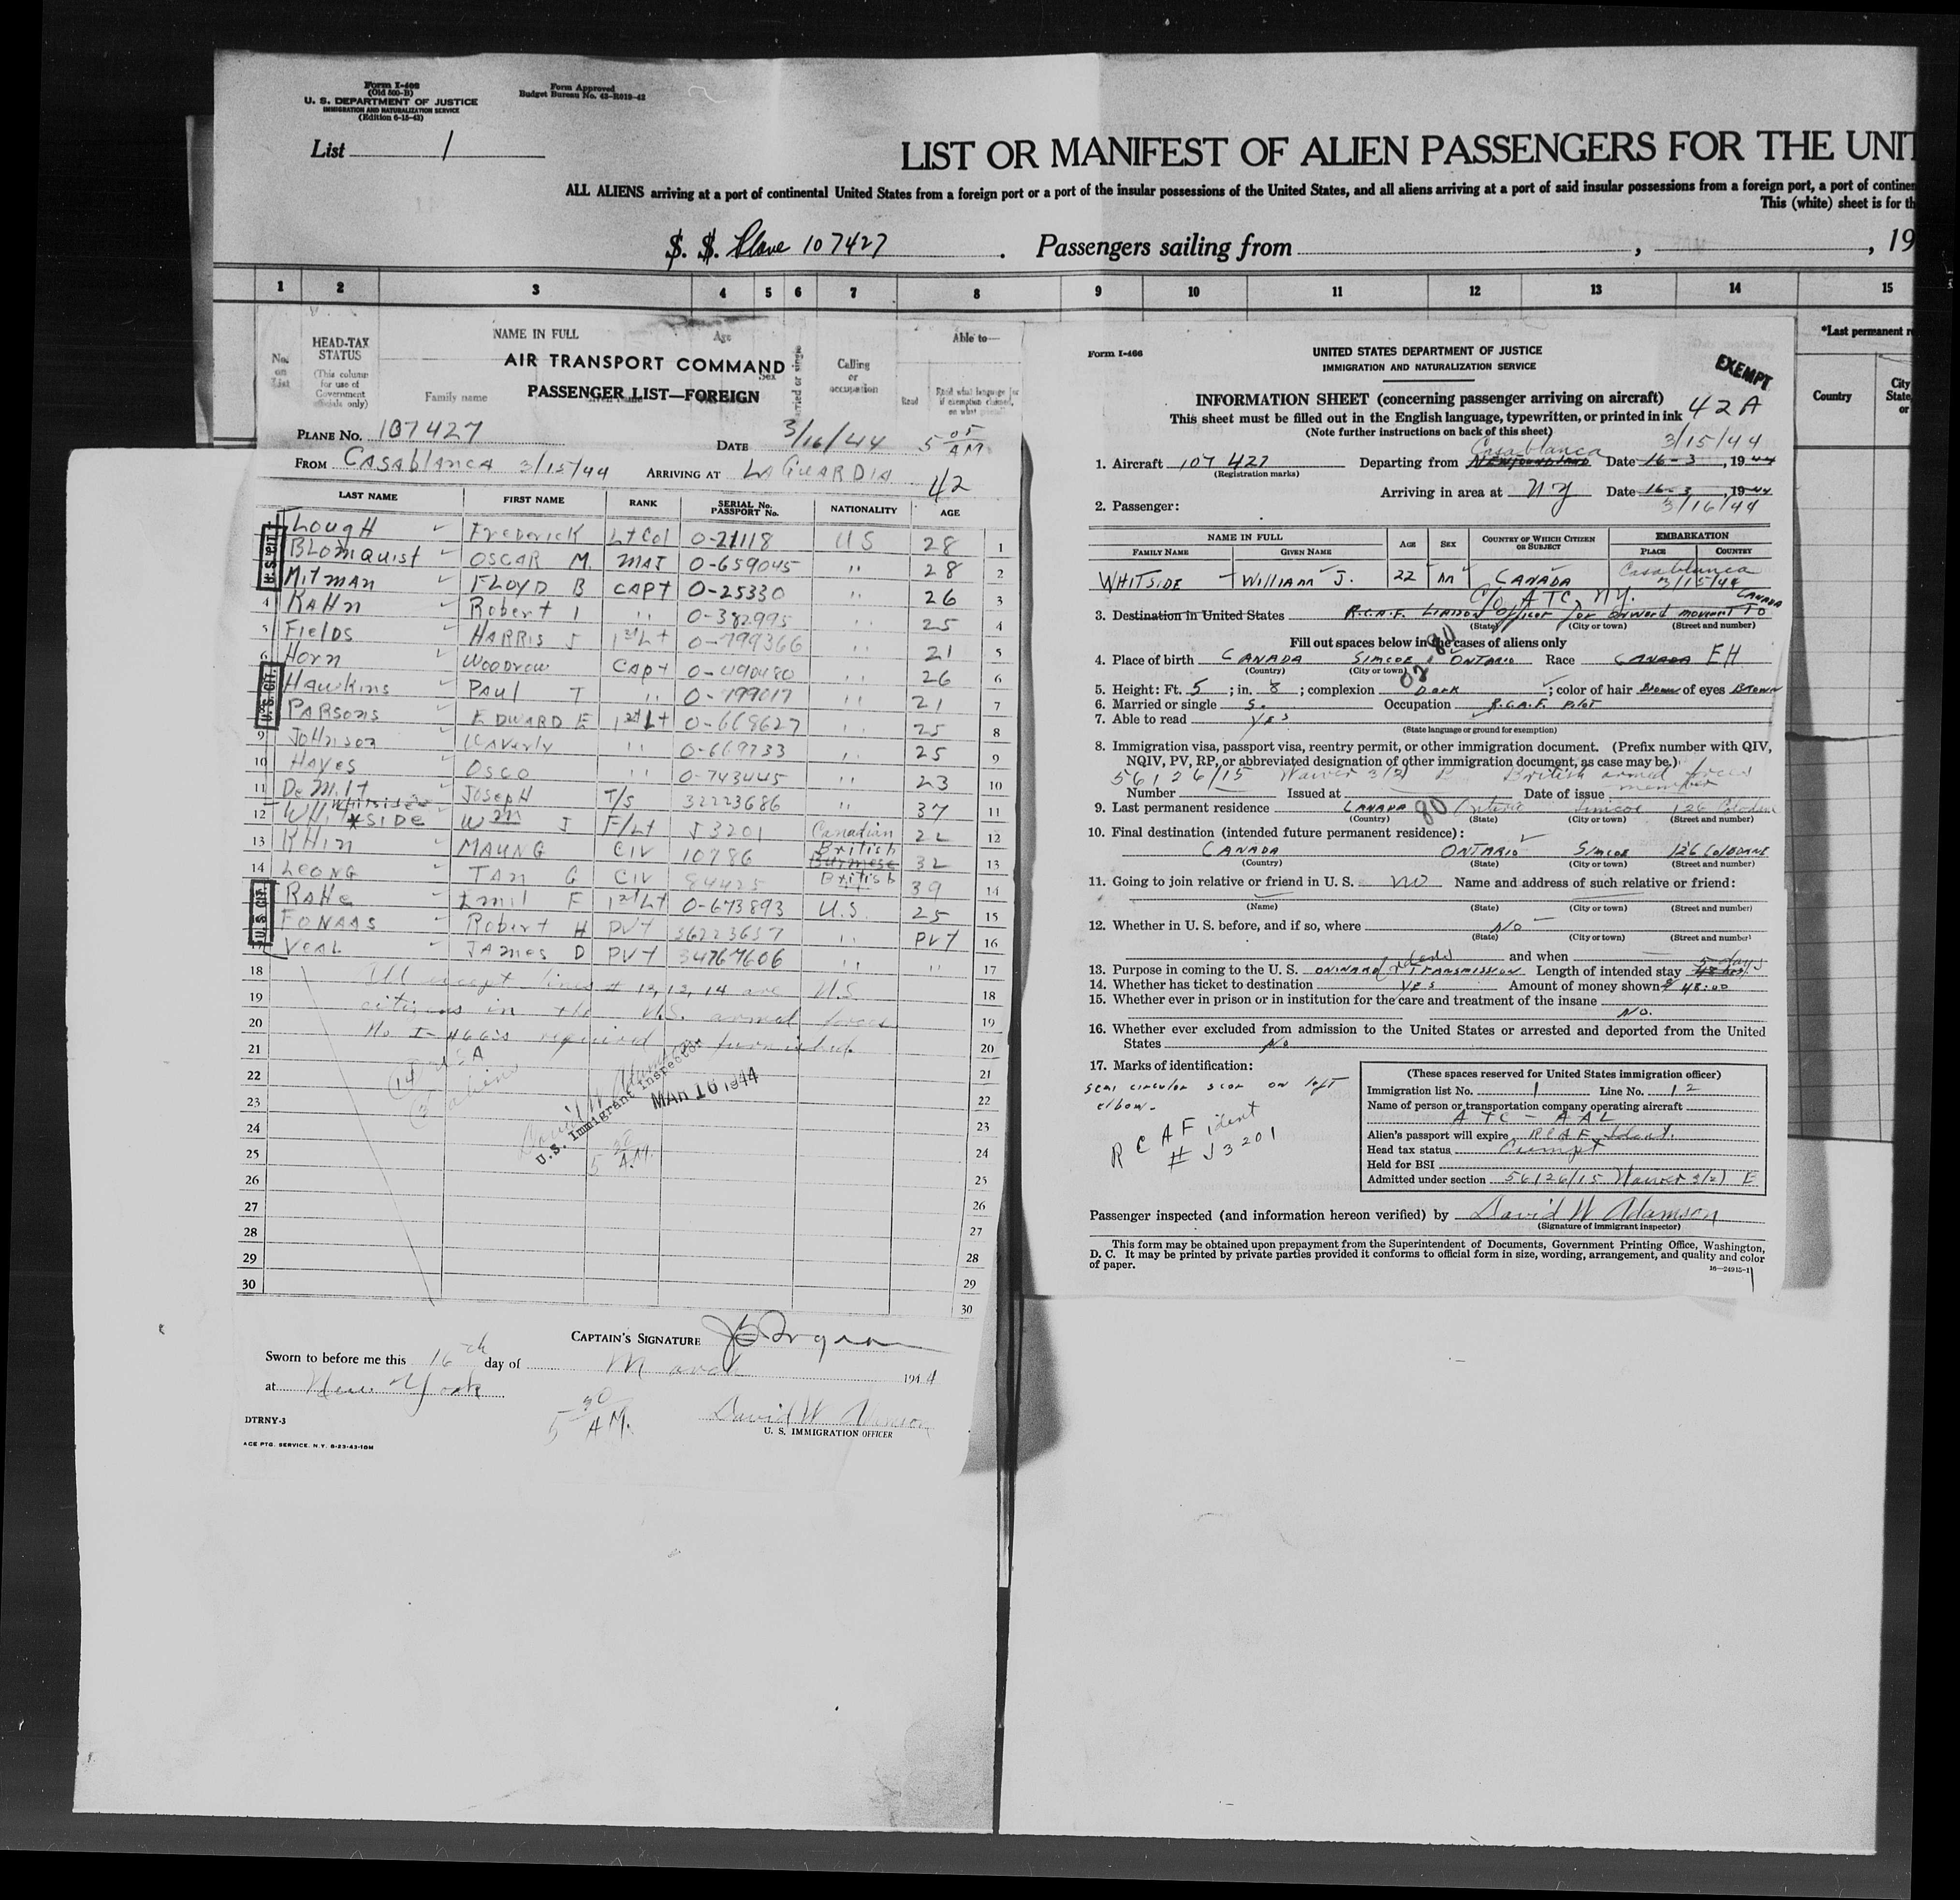 Form I-408
(Old 500-B)
U. S. DEPARTMENT OF JUSTICE
IMMIGRATION AND NATURALIZATION SERVICE
(Edition 6-15-43)
Form Approved
Budget Bureau No. 43-R019-42
List 1
LIST OR MANIFEST OF ALIEN PASSENGERS FOR THE UNIT
ALL ALIENS arriving at a port of continental United States from a foreign port or a port of the insular possessions of the United States, and all aliens arriving at a port of said insular possessions from a foreign port, a port of continen
This (white) sheet is for th
S. S. Plane 107427. Passengers sailing from , , 19
1 2 3 4 5 6 7 8 9 10 11 12 13 14 15
No. on List
HEAD-TAX STATUS
(This column for use of Government officials only)
NAME IN FULL
Family name
Age
Sex
Calling or occupation
Able to—
Read
*Last permanent r
Country
City
State
or
AIR TRANSPORT COMMAND
PASSENGER LIST—FOREIGN
PLANE NO. 107427 DATE 3/16/44 5 05 AM
FROM CASABLANCA 3/15/44 ARRIVING AT LAGUARDIA 42
LAST NAME FIRST NAME RANK SERIAL No. PASSPORT No. NATIONALITY AGE
LOUGH Frederick Lt Col O-21118 US 28 1
BLOMQUIST OSCAR M. MAJ O-659045 " 28 2
MITMAN FLOYD B CAPT O-25330 " 26 3
4 KAHN Robert I " O-382995 " 25 4
5 FIELDS HARRIS J 1st Lt O-799366 " 21 5
6 Horn Woodrow CAPt O-490480 " 26 6
HAWKINS PAUL T " O-799017 " 21 7
PARSONS EDWARD E 1st Lt O-668627 " 25 8
9 JOHNSON Waverly " O-669733 " 25 9
10 HAYES OSCO " O-743445 " 23 10
11 DeMilt JOSEPH T/S 32223686 " 37 11
12 WHITSIDE Wm J F/Lt J3201 Canadian 22 12
13 KHIN MAUNG CIV 10786 British Burmese 32 13
14 LEONG TAN G CIV 84425 British 39 14
RAHE Emil F 1st Lt O-673893 U.S. 25 15
FONAAS Robert H PVT 36223657 " PVT 16
17 VEAL JAMES D PVT 34767606 " " 17
18 All except lines # 12, 13, 14 are U.S. 18
19 citizens in the U.S. armed forces 19
20 No I-466's required or furnished. 20
21
22 21
23 22
24 23
25 24
26 25
27 26
28 27
29 28
30 29
30
14 USA
3 aliens
David W Adamson
U. S. Immigrant Inspector
MAR 16 1944
5 30 A.M.
U.S. CIT.
U.S. CIT.
U.S. CIT.
CAPTAIN'S SIGNATURE
Sworn to before me this 16th day of March 1944
at New York
5 30 AM.
David W Adamson
U. S. IMMIGRATION OFFICER
DTRNY-3
ACE PTG. SERVICE. N.Y. 8-23-43-10M
Form I-466
UNITED STATES DEPARTMENT OF JUSTICE
IMMIGRATION AND NATURALIZATION SERVICE
EXEMPT
INFORMATION SHEET (concerning passenger arriving on aircraft)
42A
This sheet must be filled out in the English language, typewritten, or printed in ink
(Note further instructions on back of this sheet)
Casablanca 3/15/44
1. Aircraft 107427 Departing from NEWFOUNDLAND Date 16-3, 1944
(Registration marks)
Arriving in area at NY Date 16-3, 1944
2. Passenger: 3/16/44
NAME IN FULL AGE SEX COUNTRY OF WHICH CITIZEN OR SUBJECT EMBARKATION
FAMILY NAME GIVEN NAME PLACE COUNTRY
WHITSIDE William J. 22 M CANADA Casablanca 3/15/44
C/O ATC, NY.
3. Destination in United States R.C.A.F. LIAISON Officer for onward movement TO CANADA
(State) (City or town) (Street and number)
Fill out spaces below in the cases of aliens only
4. Place of birth CANADA SIMCOE ONTARIO Race CANADA EH
(Country) (City or town)
5. Height: Ft. 5; in. 8; complexion Dark; color of hair Brown of eyes Brown
6. Married or single S. Occupation R.C.A.F. Pilot
7. Able to read Yes
(State language or ground for exemption)
8. Immigration visa, passport visa, reentry permit, or other immigration document. (Prefix number with QIV,
NQIV, PV, RP, or abbreviated designation of other immigration document, as case may be.)
56126/15 Waiver 3(2) E British armed forces member
Number Issued at Date of issue
9. Last permanent residence CANADA Ontario Simcoe 126
(Country) (State) (City or town) (Street and number)
10. Final destination (intended future permanent residence):
CANADA ONTARIO Simcoe 126
(Country) (State) (City or town) (Street and number)
11. Going to join relative or friend in U. S. NO Name and address of such relative or friend:
(Name) (State) (City or town) (Street and number)
12. Whether in U. S. before, and if so, where No
(State) (City or town) (Street and number)
and when
13. Purpose in coming to the U. S. ONWARD TRANSMISSION Length of intended stay 5 days
14. Whether has ticket to destination Yes Amount of money shown $ 48.00
15. Whether ever in prison or in institution for the care and treatment of the insane
No.
16. Whether ever excluded from admission to the United States or arrested and deported from the United
States No
17. Marks of identification:
semi circular scar on left
elbow.
RCAF ident
# J3201
(These spaces reserved for United States immigration officer)
Immigration list No. 1 Line No. 12
Name of person or transportation company operating aircraft
ATC - AAL
Alien's passport will expire RCAF Ident.
Head tax status Exempt
Held for BSI
Admitted under section 56126/15 Waiver 3(2) E
Passenger inspected (and information hereon verified) by David W Adamson
(Signature of Immigrant Inspector)
This form may be obtained upon prepayment from the Superintendent of Documents, Government Printing Office, Washington,
D. C. It may be printed by private parties provided it conforms to official form in size, wording, arrangement, and quality and color
of paper.
16—24915-1